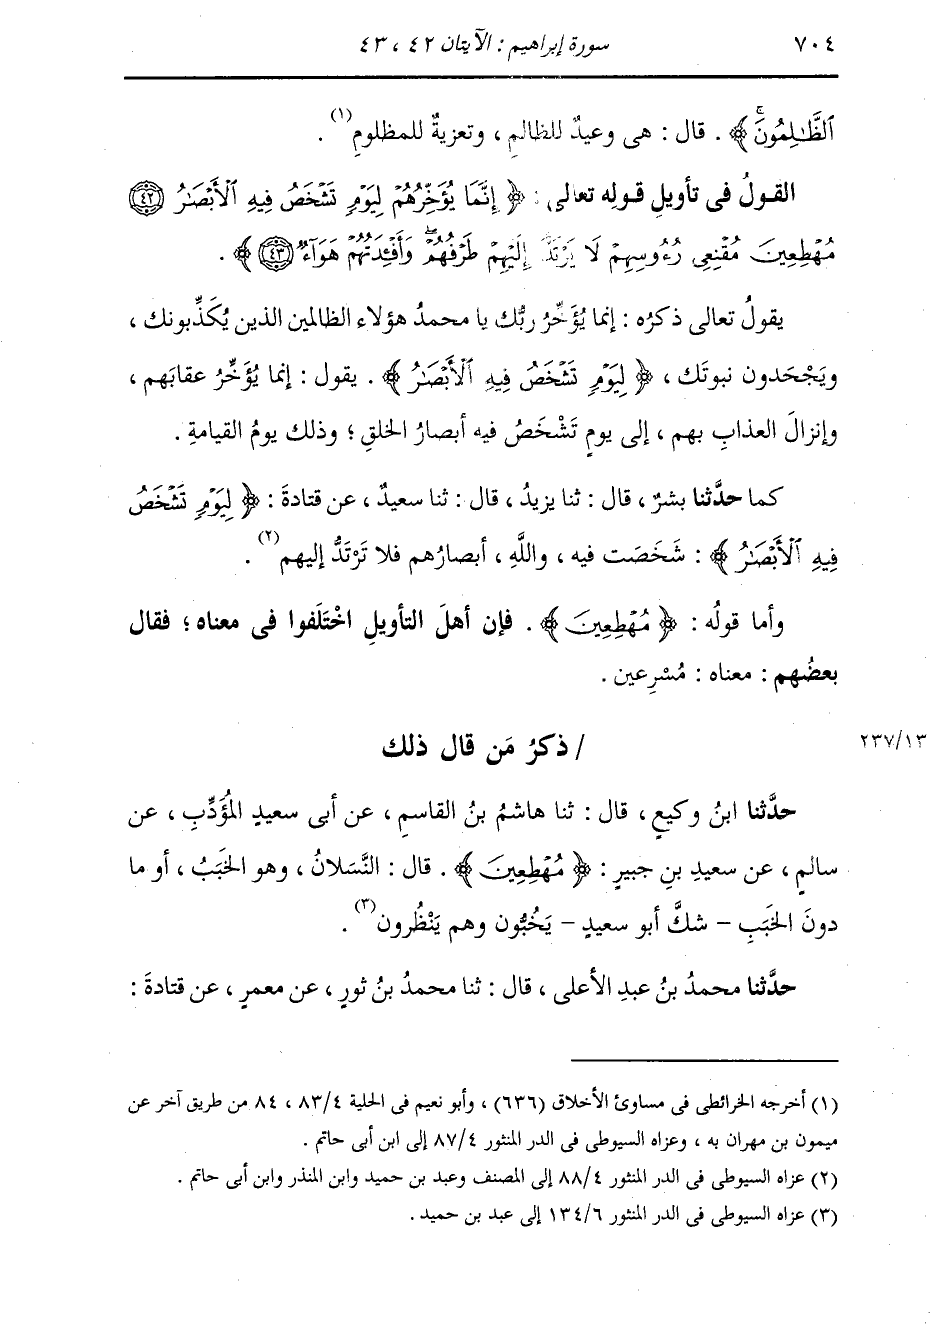 ٧٠٤ سورة إبراهيم : الآيتان ٤٢ ، ٤٣
ٱلظَّٰلِمُونَۚ ﴾ . قال : هى وعيدٌ للظالمِ ، وتعزيةٌ للمظلومِ(١) .
القولُ فى تأويلِ قولِه تعالى : ﴿ إِنَّمَا يُؤَخِّرُهُمْ لِيَوْمٍ تَشْخَصُ فِيهِ ٱلْأَبْصَٰرُ ٤٢
مُهْطِعِينَ مُقْنِعِى رُءُوسِهِمْ لَا يَرْتَدُّ إِلَيْهِمْ طَرْفُهُمْۖ وَأَفْـِٔدَتُهُمْ هَوَآءٌ ٤٣ ﴾ .
يقولُ تعالى ذكرُه : إنما يُؤَخِّرُ ربُّك يا محمدُ هؤلاء الظالمين الذين يُكَذِّبونك ،
ويَجْحَدون نبوتَك ، ﴿ لِيَوْمٍ تَشْخَصُ فِيهِ ٱلْأَبْصَٰرُ ﴾ . يقول : إنما يُؤَخِّرُ عقابَهم ،
وإنزالَ العذابِ بهم ، إلى يومٍ تَشْخَصُ فيه أبصارُ الخلقِ ؛ وذلك يومُ القيامةِ .
كما حدَّثنا بشرٌ ، قال : ثنا يزيدُ ، قال : ثنا سعيدٌ ، عن قتادةَ : ﴿ لِيَوْمٍ تَشْخَصُ
فِيهِ ٱلْأَبْصَٰرُ ﴾ : شَخَصَت فيه ، واللَّهِ ، أبصارُهم فلا تَرْتَدُّ إليهم(٢) .
وأما قولُه : ﴿ مُهْطِعِينَ ﴾ . فإن أهلَ التأويلِ اخْتَلَفوا فى معناه ؛ فقال
بعضُهم : معناه : مُسْرِعين .
/ ذكرُ مَن قال ذلك ٢٣٧/١٣
حدَّثنا ابنُ وكيعٍ ، قال : ثنا هاشمُ بنُ القاسمِ ، عن أبى سعيدٍ المُؤَدِّبِ ، عن
سالمٍ ، عن سعيدِ بنِ جبيرٍ : ﴿ مُهْطِعِينَ ﴾ . قال : النَّسَلانُ ، وهو الخَبَبُ ، أو ما
دونَ الخَبَبِ – شكَّ أبو سعيدٍ – يَخُبُّون وهم يَنْظُرون(٣) .
حدَّثنا محمدُ بنُ عبدِ الأعلى ، قال : ثنا محمدُ بنُ ثورٍ ، عن معمرٍ ، عن قتادةَ :
(١) أخرجه الخرائطى فى مساوئ الأخلاق (٦٣٦) ، وأبو نعيم فى الحلية ٨٣/٤ ، ٨٤ من طريق آخر عن
ميمون بن مهران به ، وعزاه السيوطى فى الدر المنثور ٨٧/٤ إلى ابن أبى حاتم .
(٢) عزاه السيوطى فى الدر المنثور ٨٨/٤ إلى المصنف وعبد بن حميد وابن المنذر وابن أبى حاتم .
(٣) عزاه السيوطى فى الدر المنثور ١٣٤/٦ إلى عبد بن حميد .